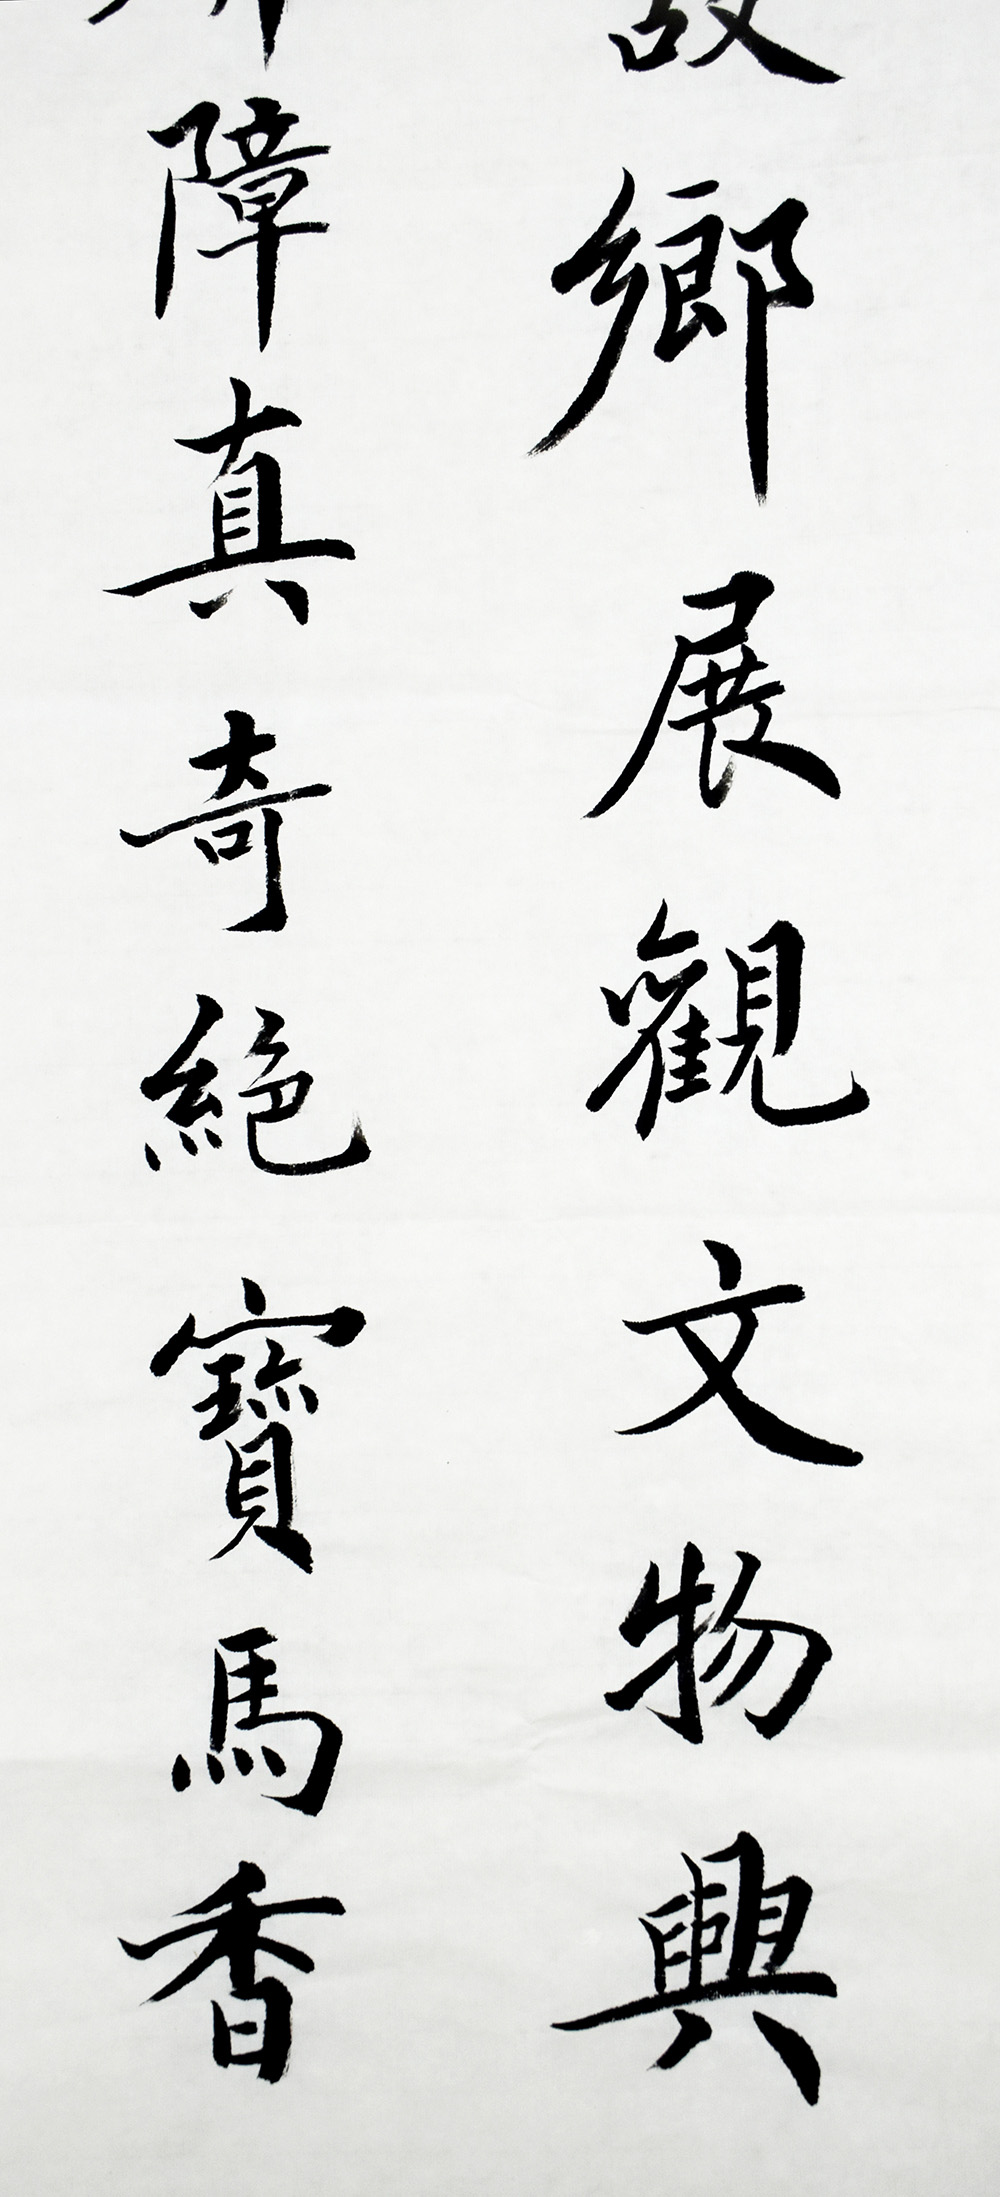 故鄉展觀文物興
障真奇絕寶馬香